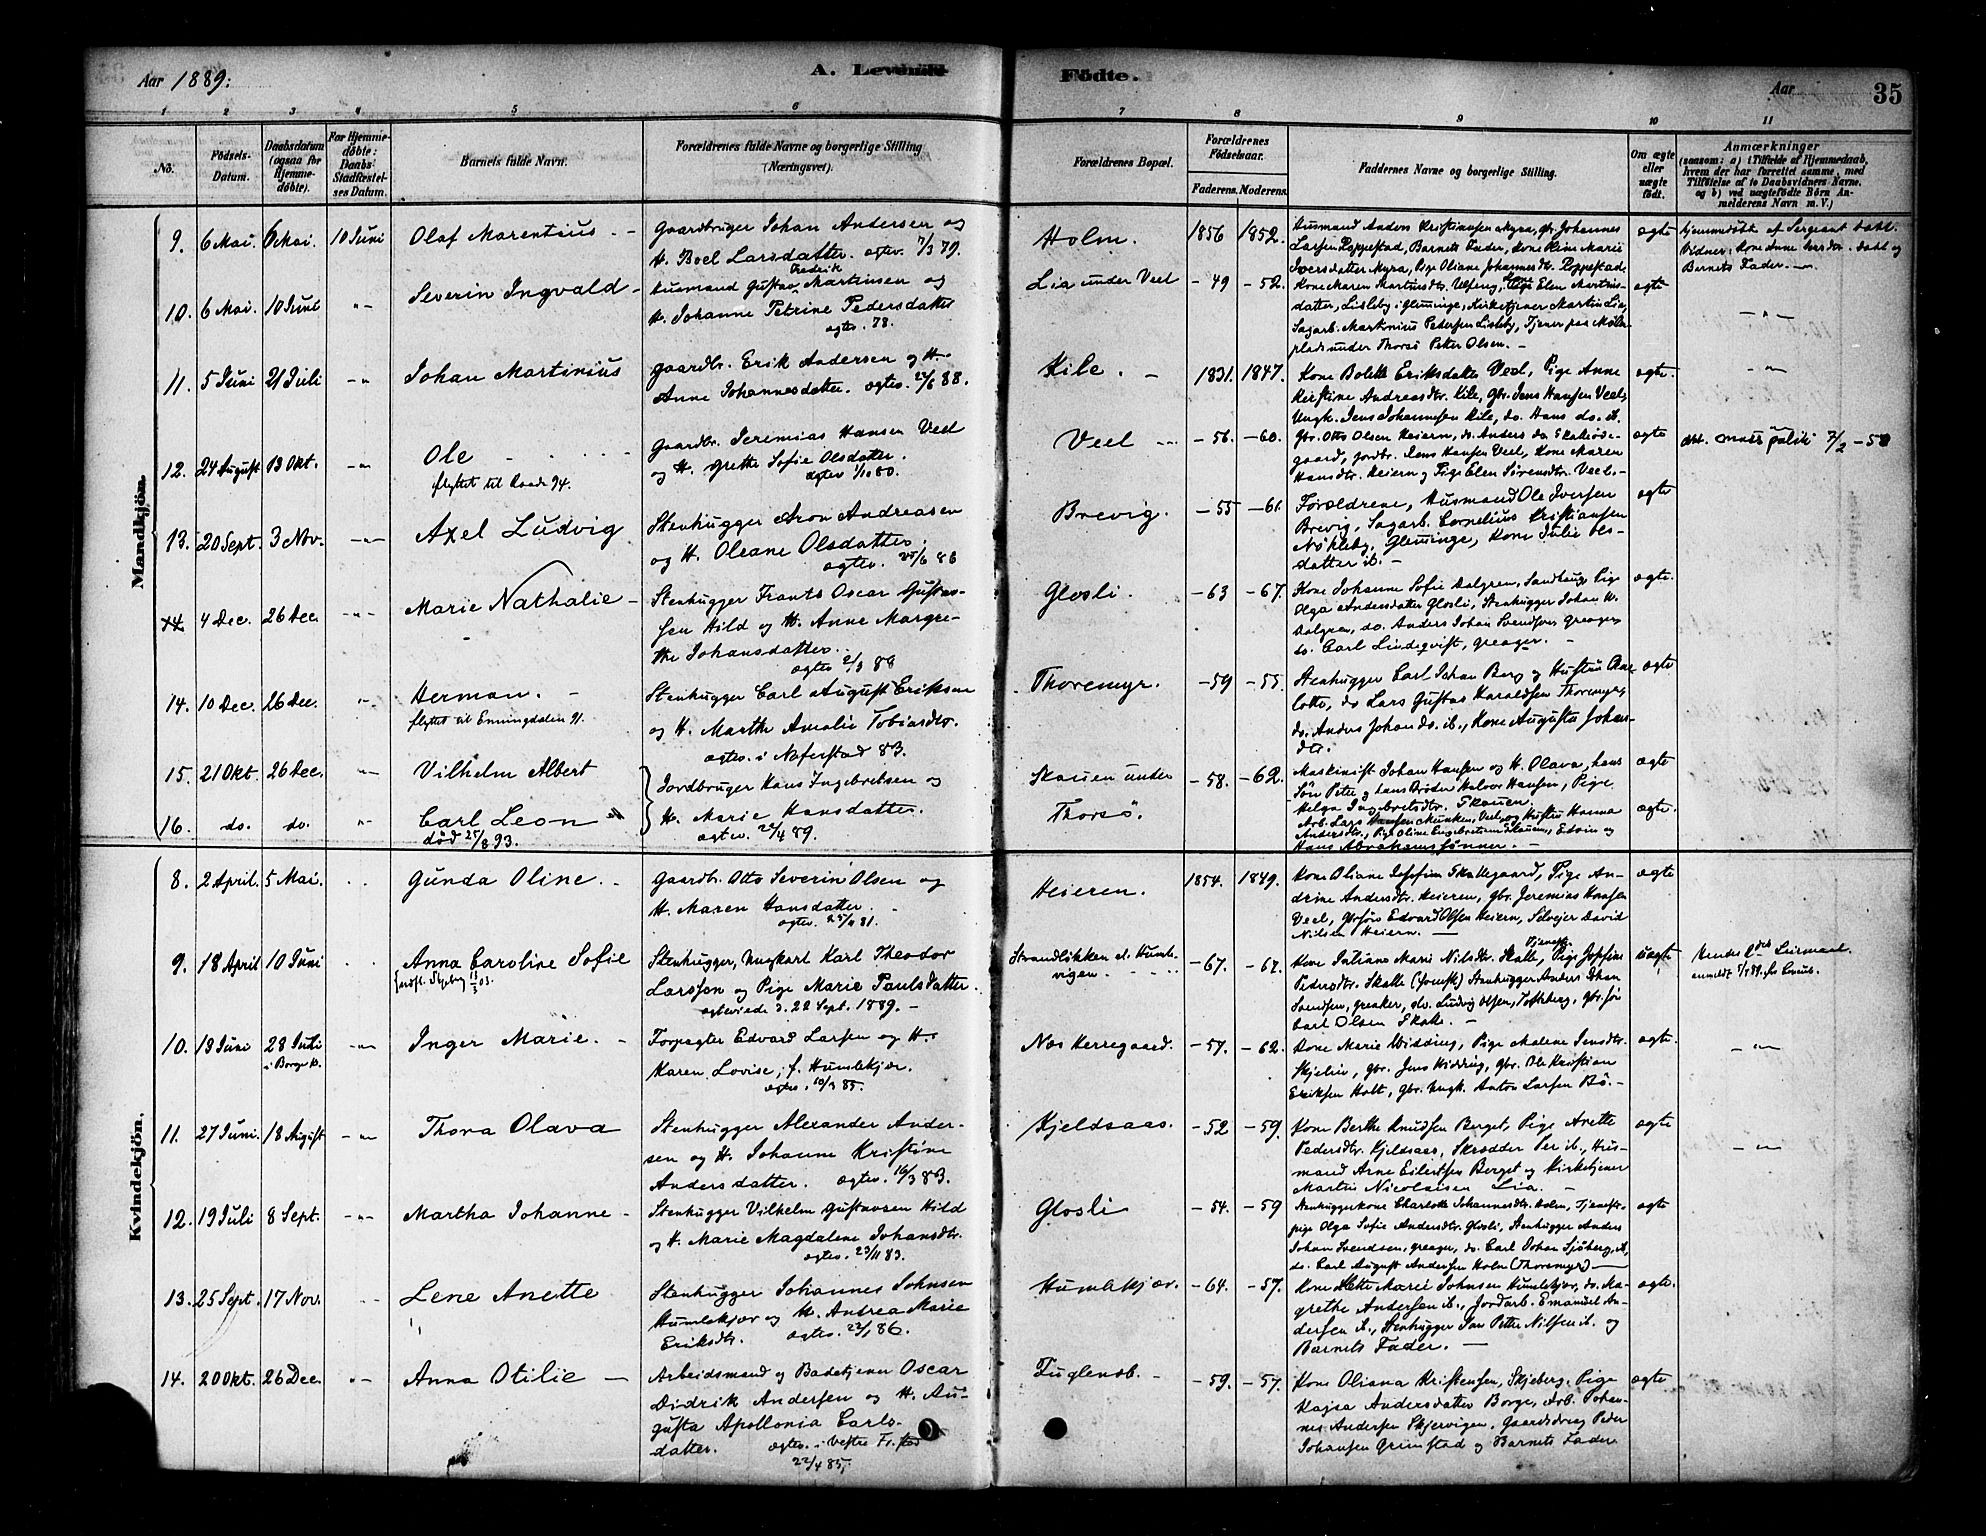 Aar 1889.
A. Levende Födte.
Aar
35
1 2 3 4 5 6 7 8 9 10 11
No.
Födsels-Datum.
Daabsdatum (ogsaa for Hjemme-döbte).
For Hjemme-döbte: Daabs-Stadfæstel-ses Datum.
Barnets fulde Navn.
Forældrenes fulde Navne og borgerlige Stilling (Næringsvei).
Forældrenes Bopæl.
Forældrenes Födselsaar.
Faderens. Moderens.
Faddernes Navne og borgerlige Stilling.
Om ægte eller uægte födt.
Anmærkninger
(saasom: a) i Tilfælde af Hjemmedaab,
hvem der har forrettet samme, med
Tilföielse af to Daabsvidners Navne,
og b) ved uægtefödte Börn An-
melderens Navn m. V.)
Mandkjön.
9. 6 Mai. 6 Mai. 10 Juni Olaf Marentius
Gaardbruger Johan Andersen og
H. Boel Larsdatter. egtev. 7/3 79.
Holm. 1856 1852.
Husmand Anders Kristiansen Myra, gbr. Johannes
Larsen Poppestad, Barnets Fader, Kone Oline Marie
Iversdatter Myra, Pige Oliane Johannesdtr. Poppestad.
ægte
Hjemmedöbt af Sergeant Dahl.
Vidner: Kone Anne Dahl og
Barnets Fader.
10. 6 Mai. 10 Juni Severin Ingvald
Husmand Gustav Fredrik Martinsen og
H. Johanne Petrine Pedersdatter
egtev. 78.
Lia under Veel - 49 - 52.
Kone Maren Martinsdtr. Pige Elen Martins-
datter, Lisleby i Glemminge, Kirketjener Martin Lia,
Sagarb. Martinius Pedersen Lisleby, Tjener paa
plads under Thorsö Peter Olsen.
ægte
11. 5 Juni 21 Juli Johan Martinius
Gaardbr. Erik Andersen og H.
Anne Johannesdatter. egtev. 88.
Kile. 1831. 1847.
Kone Bolette Eriksdatter Veel, Pige Anne
Kirstine Andreasdtr. Kile, Gbr. Jens Hansen Veel,
Ungk. Jens Johannesen Kile, do. Hans do. ib.
ægte.
12. 24 August 13 Okt. Ole
flyttet til Raade 94.
Gaardbr. Jeremias Hansen Veel
og H. Grethe Sofie Olsdatter.
egtev. 1/10 80.
Veel - 56. - 60.
Gbr. Otto Olsen Heiern, do. Anders do. Skakiöde-
gaard, Jordbr. Jens Hansen Veel, Kone Maren
Hansdtr. Heiern og Pige Elen Sörensdtr. Veel.
ægte
7/2 - 58
13. 20 Sept. 3 Nov. Axel Ludvig
Stenhugger Aron Andreasen
og H. Oleane Olsdatter.
egtev. 86
Brevig. - 55 - 61.
Forældrene, Husmand Ole Iversen
Brevig, Sagarb. Cornelius Kristiansen
Nökleby, Glemminge, Kone Julie Ols-
datter ib.
ægte
14 4 Dec. 26 Dec. Marie Nathalie
Stenhugger Frants Oscar Gustav-
sen Hild og H. Anne Margre-
the Johansdatter.
egtev. 2/3 88
Glosli. - 63 - 67.
Kone Johanne Sofie Dalgren, Pige
Olga Andersdatter Glosli, Stenhugger Johan W.
Dalgren, do. Anders Johan Svendsen Greager,
do. Carl Lindqvist, Greager.
ægte.
14. 10 Dec. 26 Dec. Herman.
flyttet til Enningdalen 91.
Stenhugger Carl August Eriksen
og H. Marthe Amalie Tobiasdtr.
egtev. i Naferstad 83.
Thoremyr. - 59 - 55.
Stenhugger Carl Johan Berg og Hustru
lotte, do Lars Gustav Haraldsen Thoremyr,
do. Anders Johan do. ib., Kone Augusta Johans-
dtr.
ægte
15. 21 Okt. 26 Dec. Vilhelm Albert
16. do. do. Carl Leon
död 25/8 93.
Jordbruger Hans Ingebretsen og
H. Marie Hansdatter.
egtev. 22/4 89.
Skauen under
Thorsö.
- 58. - 62.
Maskinist Johan Hansen og H. Olava, hans
Sön Peter og hans Broder Halvor Hansen, Pige
Helga Ingebretsdtr. Skauen.
ægte
Arb. Lars Hansen Munken, Veel, og Hustru Hanna
Andersdtr., Pige Oline Engebretsen Skauen, Edvin og
Hans Abrahamssönner.
ægte.
Kvindekjön.
8. 2 April. 5 Mai. Gunda Oline.
Gaardbr. Otto Severin Olsen og
H. Maren Hansdatter.
egtev. 81.
Heieren. 1854. 1849.
Kone Oliane Josefsen Skallegaard, Pige An-
drine Andersdtr. Heieren, gbr. Jeremias Hansen
Veel, gbrsön Edvard Olsen Heiern, Selveier David
Nilsen Heiern.
ægte
9. 18 April 10 Juni Anna Caroline Sofie
Stenhugger, Ungkarl Karl Theodor
Larsson og Pige Marie Paulsdatter.
egteviede d. 22 Sept. 1889.
Strandlökken v. Humle-
vigen. - 67. - 67.
Kone Juliane Marie Nilsdtr. Skalle, Tjeneste Pige Josefine
Pedersdtr. Skalle (svensk) Stenhugger Anders Johan
Svendsen, Greaker, do. Ludvig Olsen, Torsberg, gbr.sön
Carl Olsen Skalle.
uægte
10. 13 Juni 28 Juli
i Borge K.
Inger Marie.
Forpagter Edvard Larsen og H.
Karen Lovise, f. Humlekjær.
egtev. 10/3 85.
Næs Herregaard. - 57. - 62.
Kone Marie Widding, Pige Malene Jensdtr.
Skjelin, gbr. Jens Widding, gbr. Ole Kristian
Eriksen Holt, gbr. Ungk. Anton Larsen Bö.
ægte.
11. 27 Juni. 18 August Thora Olava
Stenhugger Alexander Ander-
sen og H. Johanne Kristine
Andersdatter. egtev. 16/3 83.
Kjeldsaas. - 52 - 59.
Kone Berthe Knudsen Berget, Pige Anette
Pedersdtr. Kjeldsaas, Skrædder Per ib., Hus-
mand Arne Eilertsen Berget og Kirketjener
Martin Nicolaisen Lia.
ægte
12. 19 Juli 8 Sept. Martha Johanne
Stenhugger Vilhelm Gustavsen Hild
og H. Marie Magdalene Johansdtr.
egtev. 23/11 83.
Glosli - 54. - 59
Stenhuggerkone Charlotte Johannesdtr. Holm, Tjeneste-
pige Olga Sofie Andersdtr. Glosli, Stenhugger Anders
Johan Svendsen, Greager, do. Carl Johan Sjöberg, ib,
do. Carl August Andersen Holm (Thoremyr)
ægte
13. 25 Sept. 17 Nov. Lene Anette
Stenhugger Johannes Johnsen
Humlekjær og H. Andrea Marie
Eriksdtr. egtev. 22/1 86.
Humlekjær. - 64. - 57.
Kone Mette Marie Johnsen Humlekjær, do. Ma-
grethe Andersen ib., Jordarb. Emanuel An-
dersen ib., Stenhugger Jan Petter Nilsen ib. og
Barnets Fader.
ægte.
14. 20 Okt. 26 Dec. Anna Otilie
Arbeidsmand og Badetjener Oscar
Didrik Andersen og H. Au-
gusta Apollonia Carls-
datter. egtev. i Vestre Fr.stad
22/4 85.
Fuglensb. - 59. - 57.
Kone Oliana Kristensen, Skjeberg, Pige
Kajsa Andersdatter Borge, Arb. Johan-
nes Andersen Skjærvigen, Gaardsdreng Peder
Johansen Grimstad og Barnets Fader
ægte